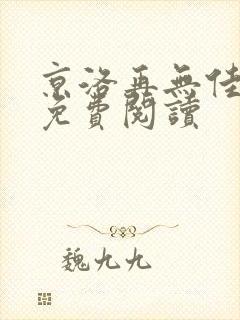 京洛再無佳
免費閱讀
魏九九